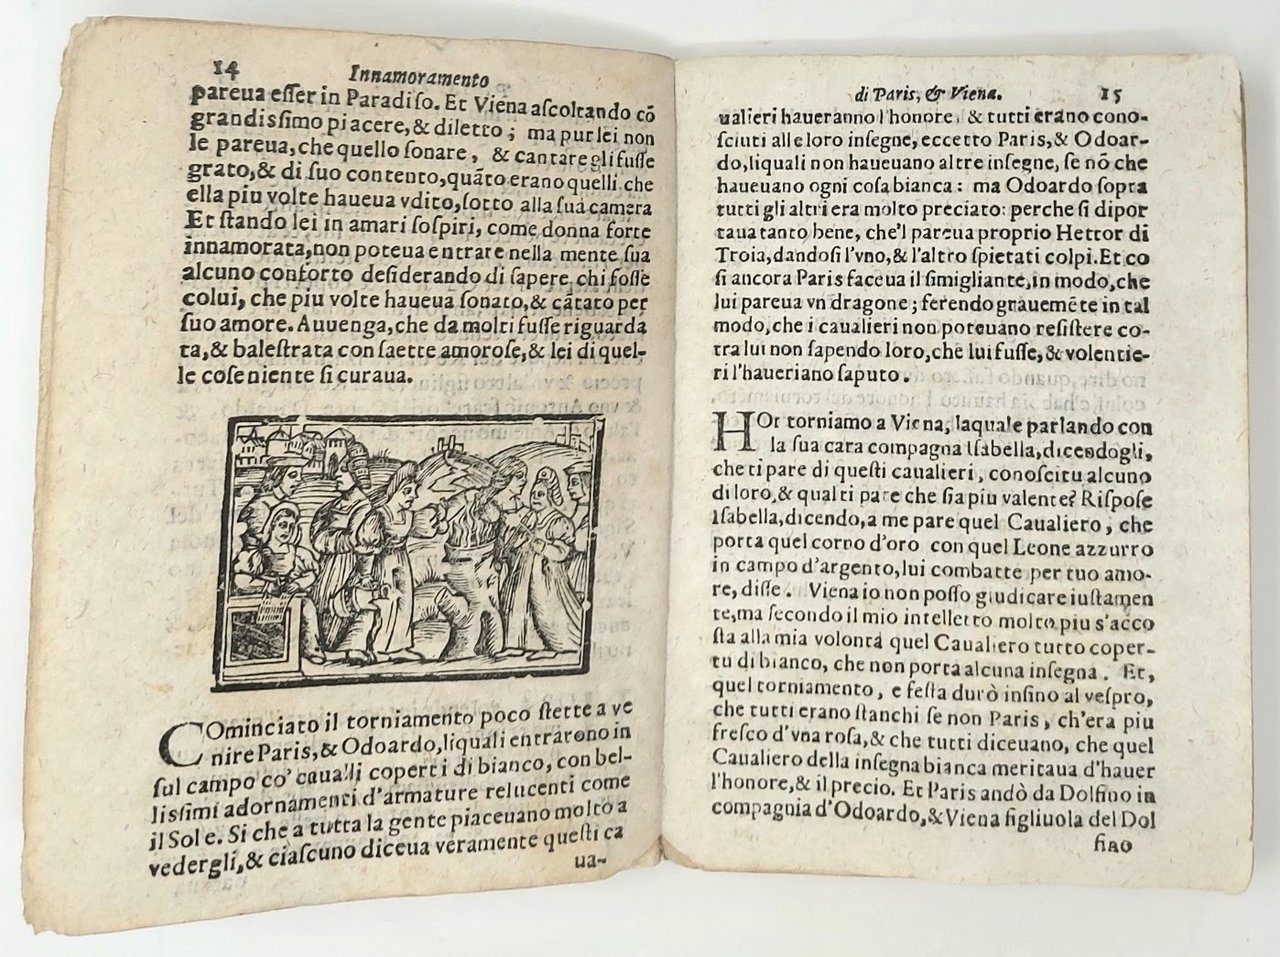 14
Innamoramento
pareua eſſer in Paradiſo. Et Viena aſcoltando cõ
grandissimo piacere, & diletto; ma pur lei non
le pareua, che quello ſonare, & cantare gli fuſſe
grato, & di ſuo contento, quãto erano quelli che
ella piu volte haueua vdito, ſotto alla ſua camera
Et ſtando lei in amari ſoſpiri, come donna forte
innamorata, non poteua entrare nella mente ſua
alcuno conforto deſiderando di ſapere chi foſſe
colui, che piu volte haueua ſonato, & cãtato per
ſuo amore. Auuenga, che da molti fuſſe riguarda
ta, & baleſtrata con ſaette amoroſe, & lei di quel-
le coſe niente ſi curaua.
COminciato il torniamento poco ſtette a ve
nire Paris, & Odoardo, liquali entrarono in
ſul campo co' caualli coperti di bianco, con bel-
lissimi adornamenti d'armature relucenti come
il Sole. Si che a tutta la gente piaceuano molto a
vedergli, & ciaſcuno diceua veramente queſti ca
ua-
di Paris, & Viena.
15
ualieri haueranno l'honore, & tutti erano cono-
ſciuti alle loro inſegne, eccetto Paris, & Odoar-
do, liquali non haueuano altre inſegne, ſe nõ che
haueuano ogni coſa bianca: ma Odoardo ſopra
tutti gli altri era molto preciato: perche ſi dipor
taua tanto bene, che'l pareua proprio Hettor di
Troia, dandoſi l'vno, & l'altro ſpietati colpi. Et co
ſi ancora Paris faceua il ſimigliante, in modo, che
lui pareua vn dragone; ferendo grauemẽte in tal
modo, che i caualieri non poteuano reſiſtere co-
tra lui non ſapendo loro, che lui fuſſe, & volentie-
ri l'haueriano ſaputo.
HOr torniamo a Viena, laquale parlando con
la ſua cara compagna Iſabella, dicendogli,
che ti pare di queſti caualieri, conoſci tu alcuno
di loro, & qual ti pare che ſia piu valente? Riſpoſe
Iſabella, dicendo, a me pare quel Caualiero, che
porta quel corno d'oro con quel Leone azzurro
in campo d'argento, lui combatte per tuo amo-
re, diſſe. Viena io non poſſo giudicare iuſtamen
te, ma ſecondo il mio intelletto molto piu s'acco
ſta alla mia volontà quel Caualiero tutto coper-
tu di bianco, che non porta alcuna inſegna. Et,
quel torniamento, e feſta durò inſino al veſpro,
che tutti erano ſtanchi ſe non Paris, ch'era piu
freſco d'vna roſa, & che tutti diceuano, che quel
Caualiero della inſegna bianca meritaua d'hauer
l'honore, & il precio. Et Paris andò da Dolfino in
compagnia d'Odoardo, & Viena figliuola del Dol
fino